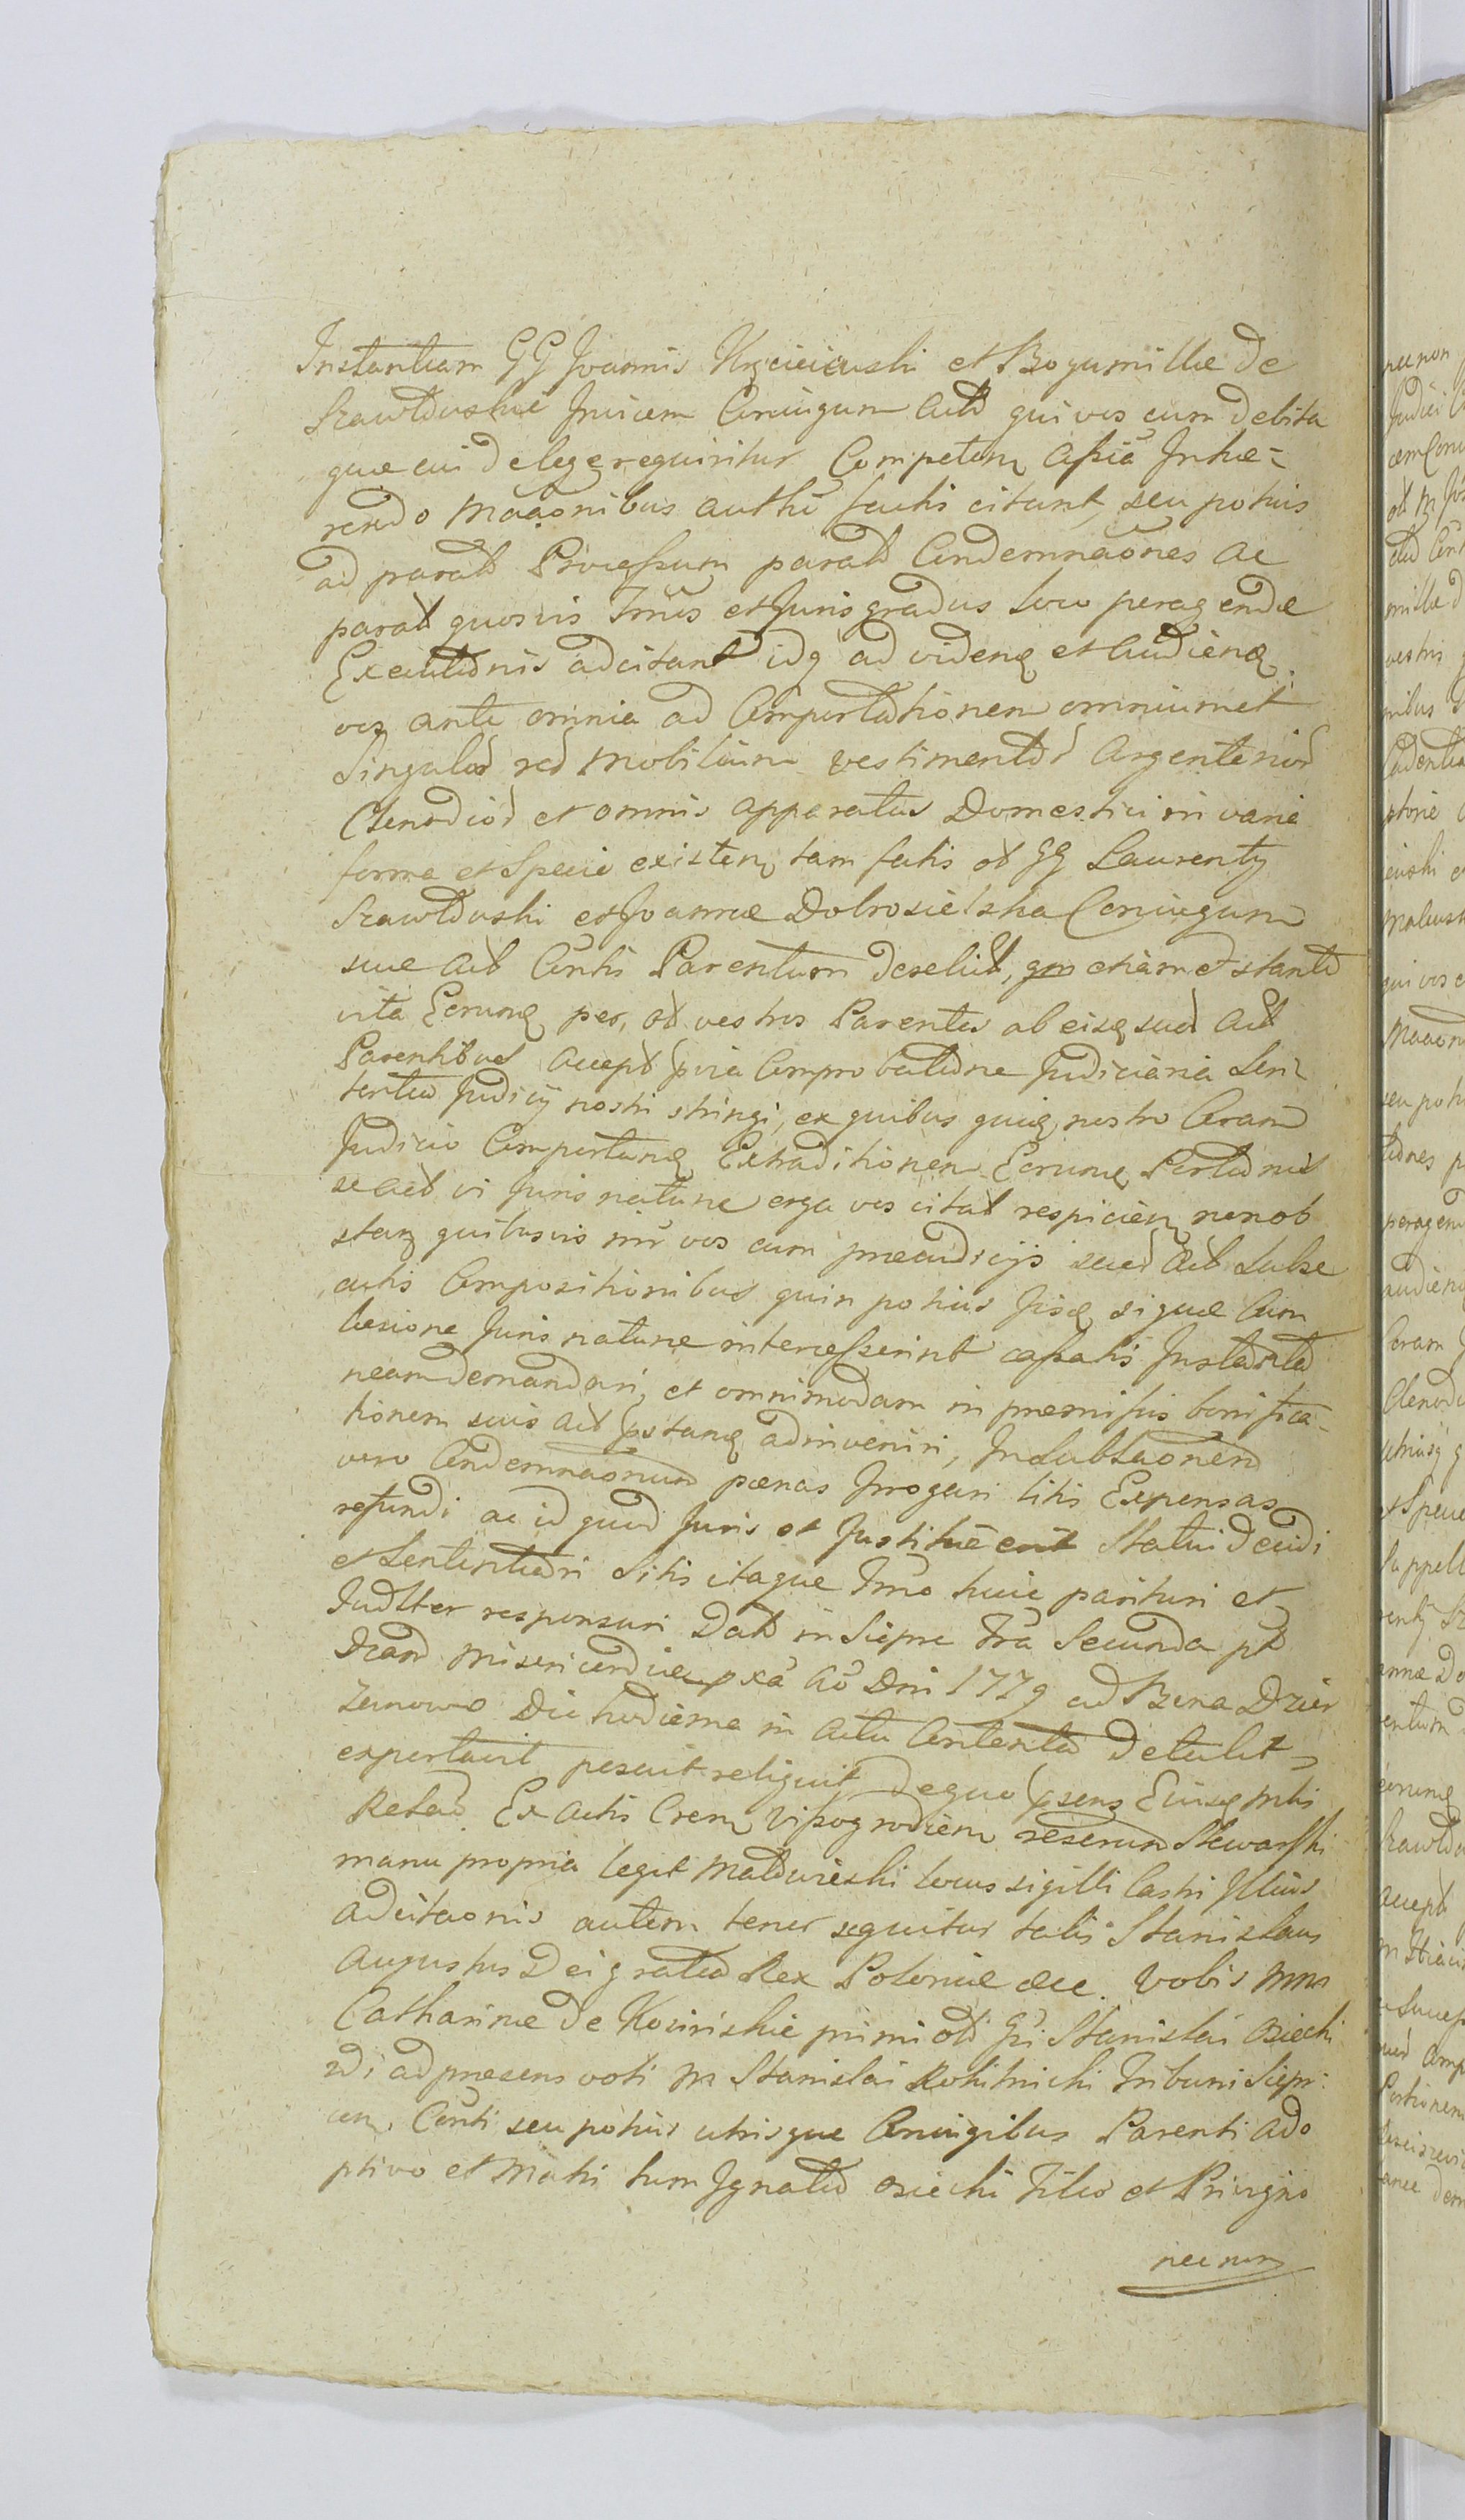 Instantiam GG Joannis et Bogumillæ de
Szawłowskie Invicem Coniugum Actor qui vos cum debita
quæ cui de lege requiritur Competen Assia Inhæ=
rendo Maaonibus authē factis citant, seu potius
ad parat Processum parat Condemnaones ac
parat quosvis Tmis et Juris gradus loco peragendæ
Executionis adcitant idq ad videnq et Audienq
vos ante omnia ad Comportationem omnium et
Singulor rer Mobilium vestimentor Argenterior
Clenodior et omnis apparatus Domestici in varia
forma et Specie existen, tam factis ol GG Laurenty
Szawłowski et Joannæ Dobrosielska Coniugum
suæ Act Contis Parentum derelict, qm etiam et stante
vita Eorunq per, ol vestros Parentes ab eisq suor Act
Parentibus accept pvia Comprobatione Judiciaria Sen
tentia Judicij nostri stringi, ex quibus quiq nostro Coram
Judicio Comportanq Extraditionem Eorunq Portionis
se Act vi Juris naturæ erga vos citat respicien non ob
stan quibusvis inr vos cum præiudicijs suor Act Subse
cutis Compositionibus quin potius Jisq si quæ Cum
læsione Juris naturæ intercesserint cassatis Instanta
neam demandari, et omnimodam in præmissis bonifica
tionem suis Act pstanq adinveniri, In Subtaonem
vero Condemnaonum pænas Irrogari litis Expensas
refundi ac id quod Juris et Justitiæ erit Statui decidi
et Sententiari Sitis itaque Tmo huic parituri et
Judlter responsuri Dat in Siepre Fra Secunda pt
Dcam Misericordiæ pxa Ao Dni 1779 ad Bona Dzier
zanowo Die hodierna in Actu Contenta detulit
exportavit posuit reliquit de quo psens Eiusq Mtis
Relao. Ex Actis Cren Vissogrodien
manu propria legit locus sigilli Castri Illius
Adcitaonis autem tenor sequitur talis Stanislaus
Augustus Dei gratia Rex Poloniæ &c. Vobis Mm
Catharinæ de primi ol Gi Stanislai Osiecki
2di ad præsens voti M Stanislai Rokitnicki Tribuni Siepr
cen. Conti seu potius utrisque Coniugibus Parenti Ado
ptivo et Matri tum Ignatio Osiecki Filio et Privigno
nec non